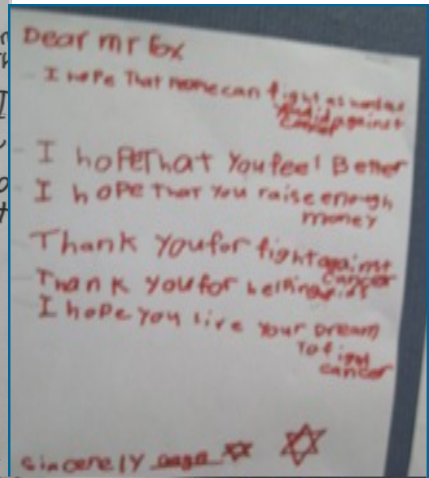 Dear mr Fox
I hope That can fight as hard as
did against
cancer
I hopeThat You feel Better
I hope That You raise enough
money
Thank you for fight against
cancer
Thank you for helking
I hope you live your Dream
To fight
cancer
sincerely